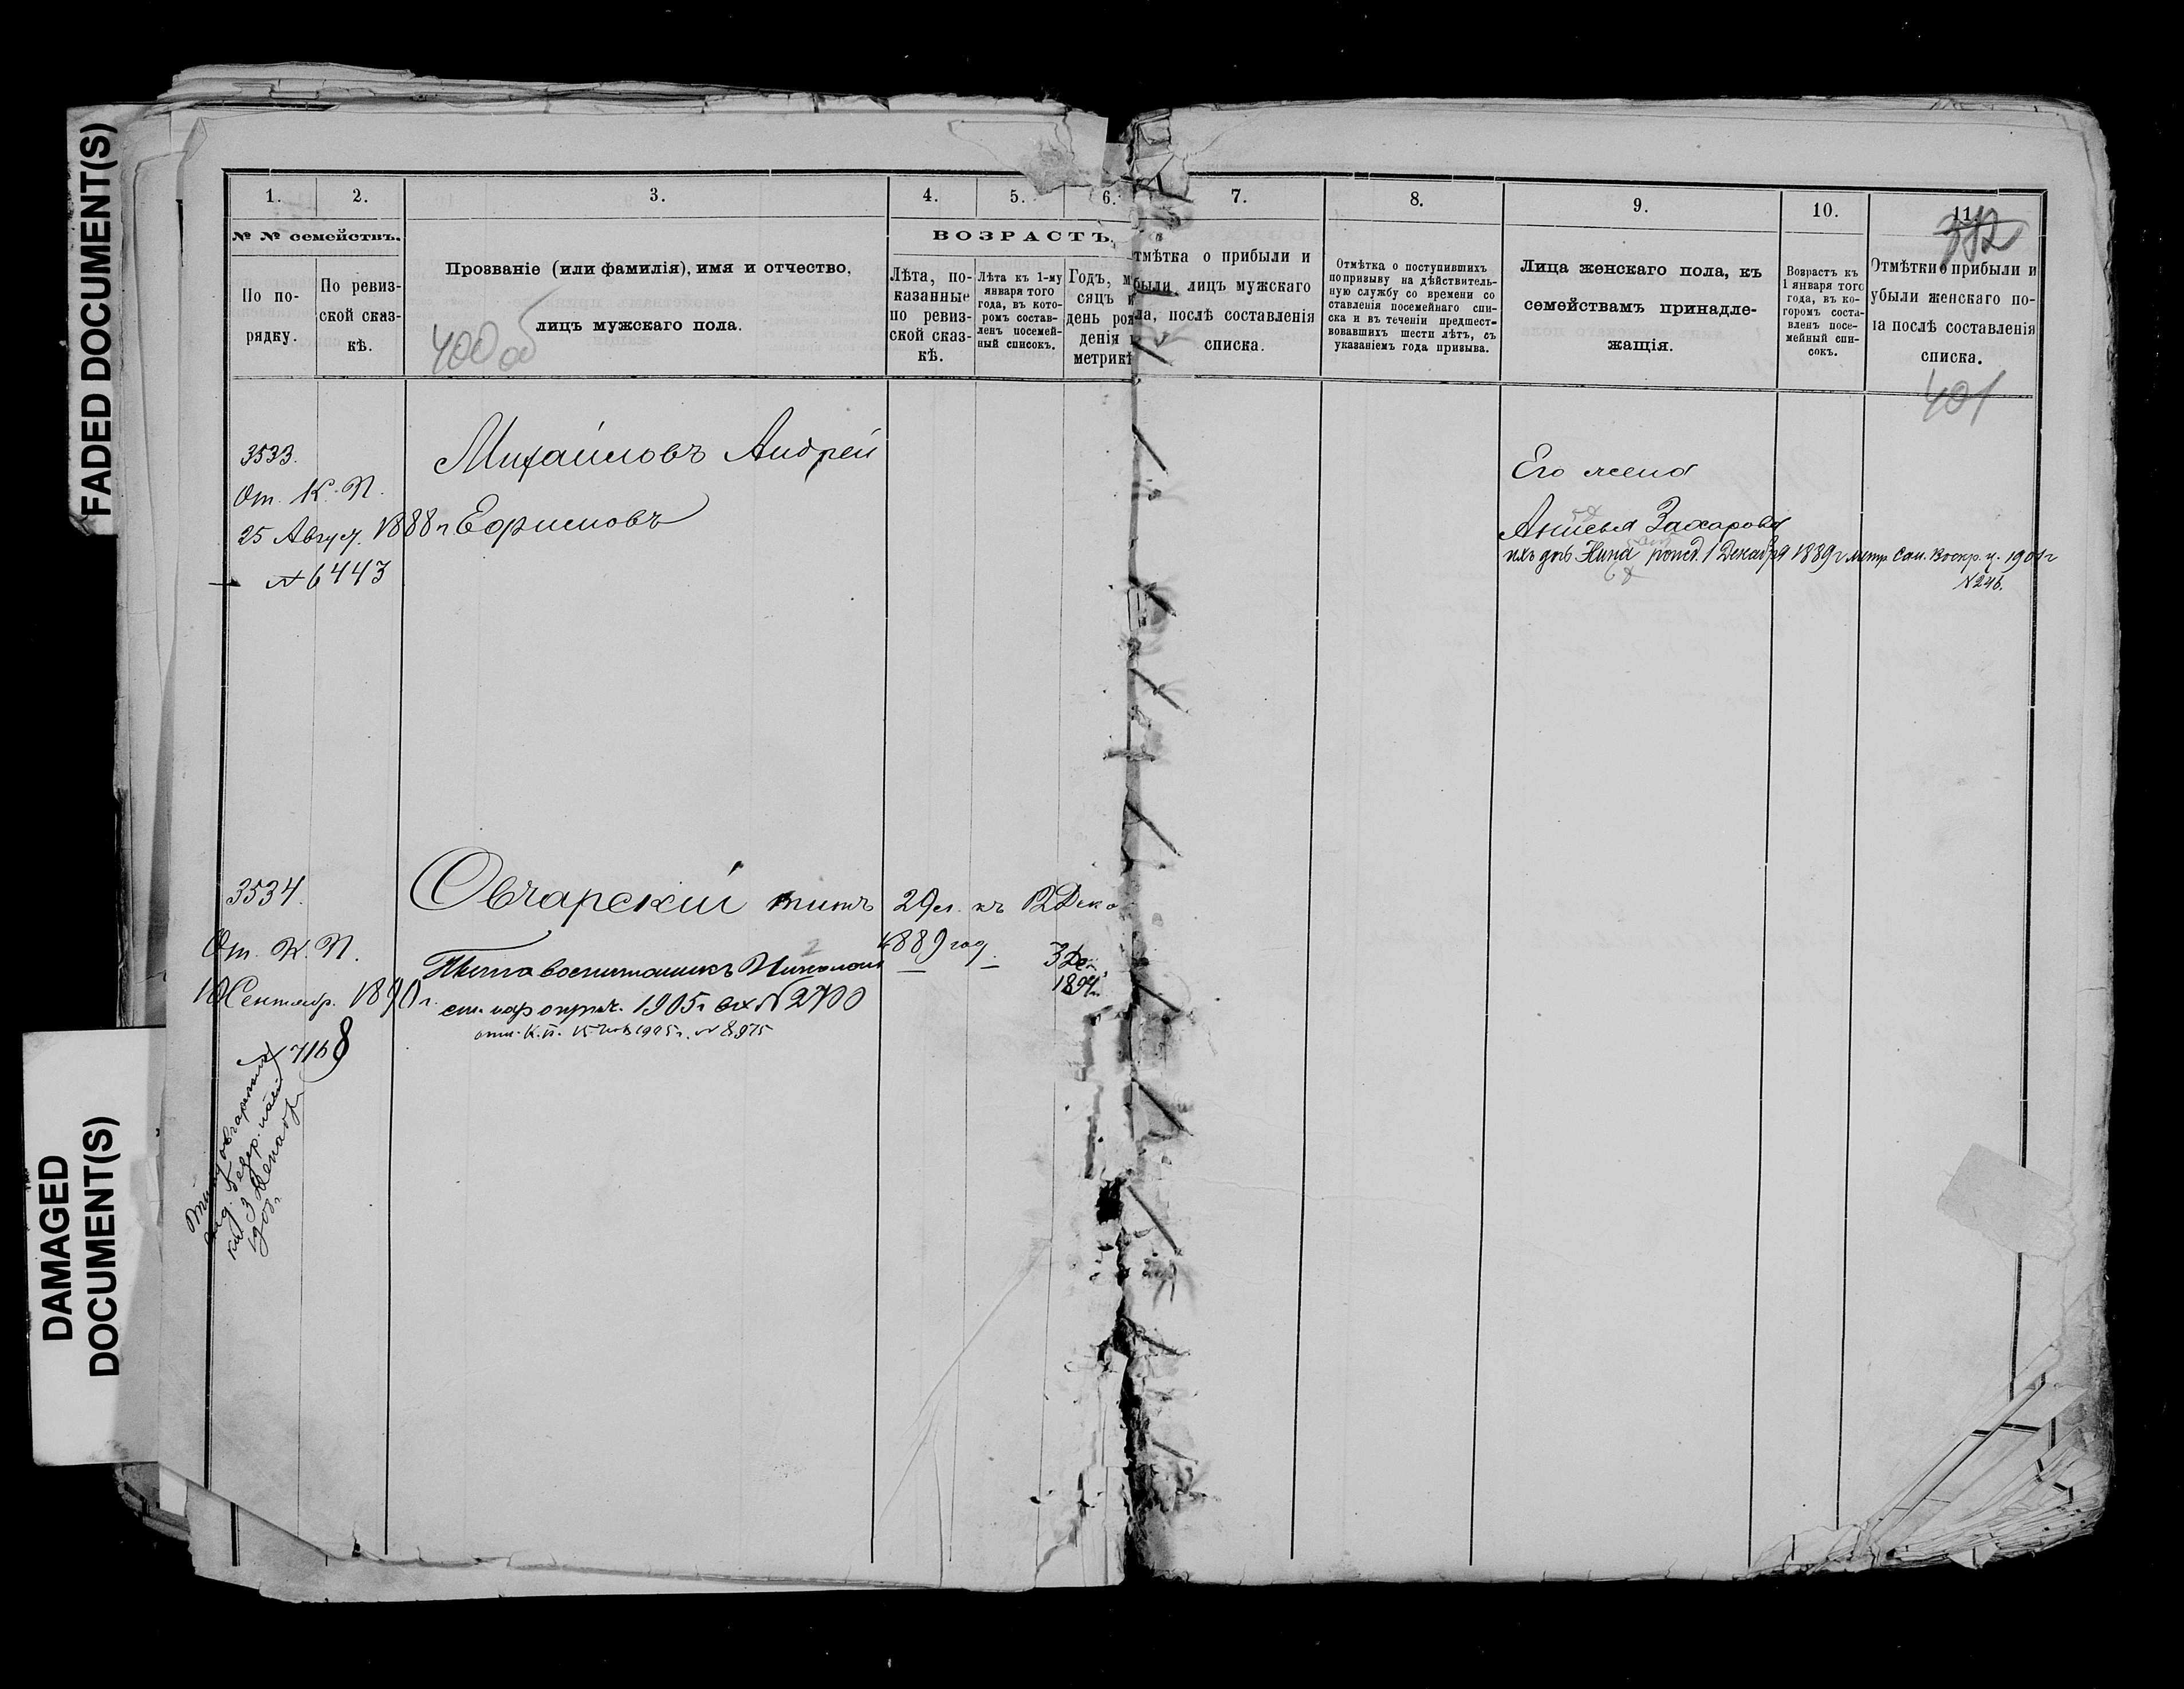 FADED DOCUMENT(S)
DAMAGED
DOCUMENT(S)
1.
2.
3.
4.
5.
6.
7.
8.
9.
10.
11.
382
№ № семействъ.
По по-
рядку.
По ревиз-
ской сказ-
кѣ.
Прозваніе (или фамилія), имя и отчество,
лицъ мужскаго пола.
400 об
ВОЗРАСТЪ.
Лѣта, по-
казанные
по ревиз-
ской сказ-
кѣ.
Лѣта къ 1-му
января того
года, въ кото-
ромъ состав-
ленъ посемей-
ный списокъ.
Годъ, м
сяцъ и
день рож
денія
метрикѣ
тмѣтка о прибыли и
были лицъ мужскаго
ла, послѣ составленія
списка.
Отмѣтка о поступившихъ
по призыву на дѣйствитель-
ную службу со времени со
ставленія посемейнаго спи-
ска и въ теченіи предшест-
вовавшихъ шести лѣтъ, съ
указаніемъ года призыва.
Лица женскаго пола, къ
семействамъ принадле-
жащія.
Возрастъ къ
1 января того
года, въ ко-
торомъ соста-
вленъ посе-
мейный спи-
сокъ.
Отмѣтки о прибыли и
убыли женскаго по-
ла послѣ составленія
списка.
401
3533.
От. К. П.
25 Август. 1888 г.
№ 6443
Михайловъ Андрей
Ефимовъ
Его жена
Анисья Захарова
ихъ дочь Нина рожд. 1 Декабря 1889 г. метр. Сам. Воскр. ц. 1901 г
№ 246.
3534.
От. К. П.
10 Сентябр. 1890 г.
№ 7168
Овчарскій Титъ
29 л. къ 12 Дек
1889 год
Тита воспитанникъ Николай
3 Дек.
1894 г.
1905 г. вх. № 2700
отн. К. П. 1905 г. № 8975
3 Декабр